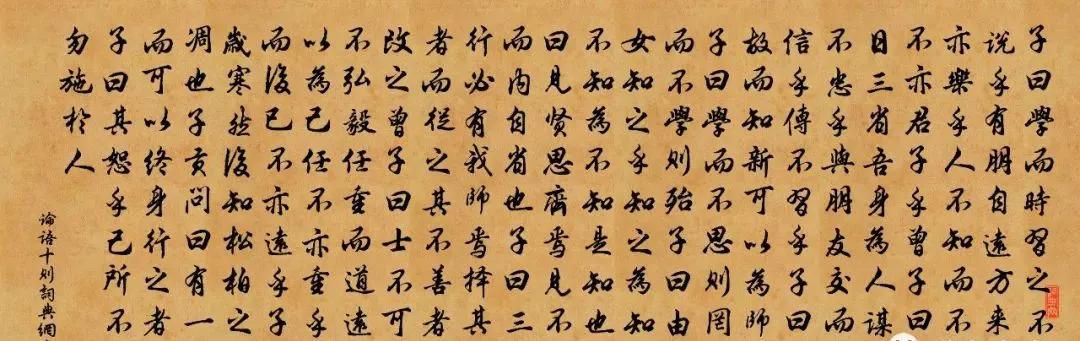 子曰學而時習之不
説乎有朋自遠方來
亦樂乎人不知而不
不亦君子乎曾子曰
日三省吾身為人謀
不忠乎與朋友交而
信乎傳不習乎子曰
故而知新可以為師
子曰學而不思則罔
而不學則殆子曰由
女知之乎知之為知
不知為不知是知也
曰見贤思齊焉見不
而内自省也子曰三
行必有我師焉择其
者而從之其不善者
改之曾子曰士不可
不弘毅任重而道遠
以為己任不亦重乎
而後已不亦遠乎子
歲寒然後知松柏之
凋也子貢問曰有一
而可以終身行之者
子曰其恕乎己所不
勿施於人
论语十则詞典網